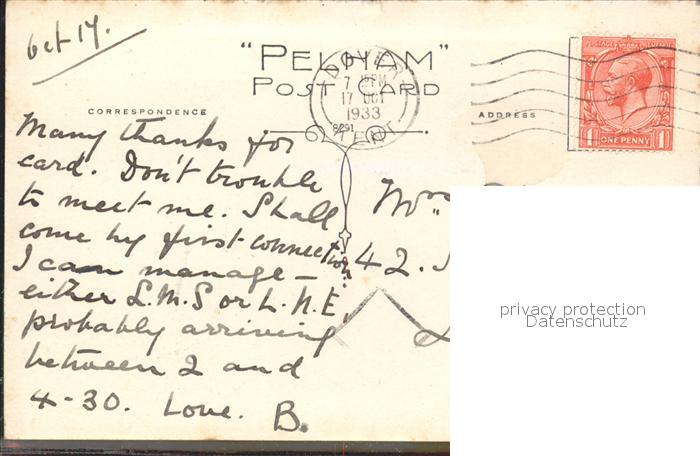 Oct 17.
"PELHAM"
POST CARD
DOVER
7 PM
17 OCT
1933
KENT
POSTAGE REVENUE
1 1
ONE PENNY
CORRESPONDENCE
ADDRESS
Many thanks for
card. Don't trouble
to meet me. Shall
come by first connection
I can manage –
either L.M.S or L.N.E,
probably arriving
between 2 and
4-30. Love. B.
Mrs
42.
privacy protection
Datenschutz